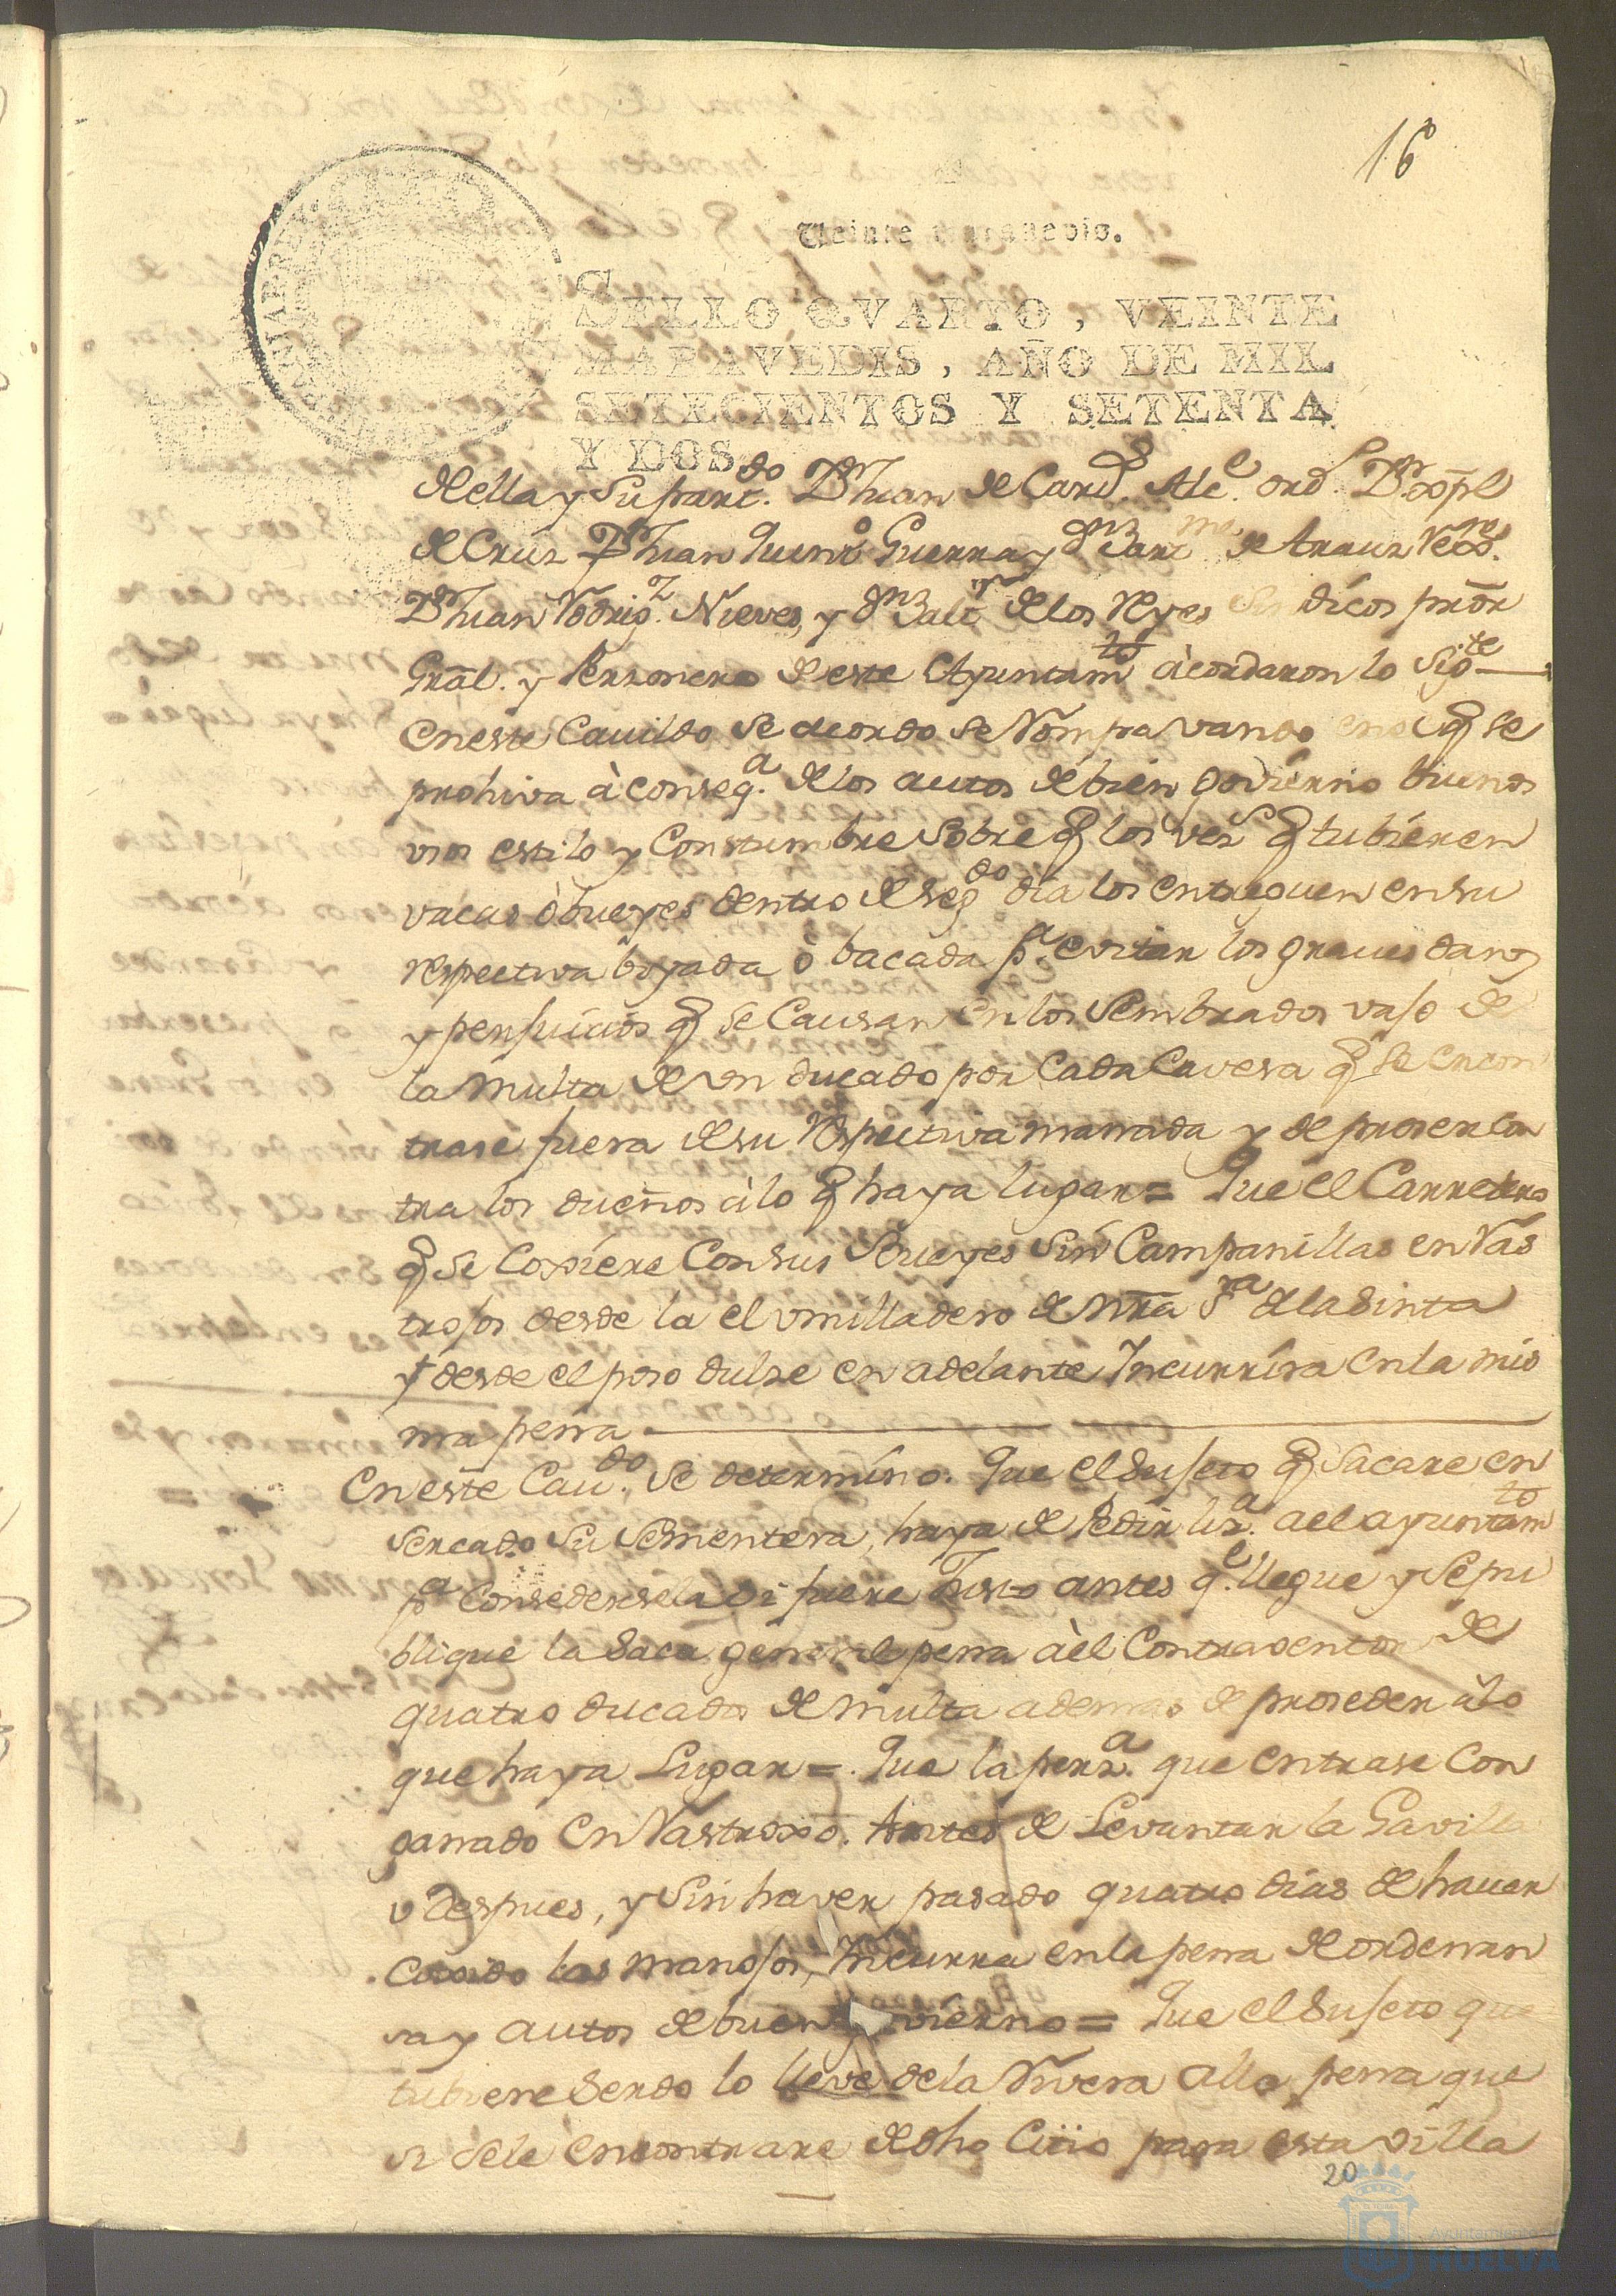 16
Veinte maravedis.
SELLO QVARTO, VEINTE
MARAVEDIS, AÑO DE MIL
SETECIENTOS Y SETENTA
Y DOS.
de ella y su partdo. Dn Juan de Card.s Alce. ordo. Dn
de Cruz Dn Juan Quinto Guerra y Dn Bartme de Arauz Rexres.
Dn Juan Rodrigz. Nieves, y Dn Baltr de los Reyes Sindicos pror
Gral. y Personero de este Ayuntamto acordaron lo sigte
En este Cavildo se acordo se Rompa vando en el q se
prohiva à conseqa. de los autos de bien govierno buenos
usos estilo y Constumbre sobre q los vezs q tubieren
vacas ò bueyes dentro de segdo dia los entreguen en su
respectiva boyada ò bacada pa. evitar los graues daños
y perjuicios q se Causan en los Sembrados vajo de
la Multa de un ducado por Cada Cavesa q se encon
trase fuera de su Respectiva manada y de proser con
tra los dueños à lo q haya lugar = Que el Carretero
q se Coxiere Con sus Bueyes Sin Campanillas en Ras
trojos desde la el vmilladero de Nra Sra de la Sinta
y desde el poso dulse en adelante Incurrira en la mis
ma pena
En este Cavdo. se determino. Que el Sujeto q Sacare en
sercado su Sementera, haya de Pedir liza. a el ayuntamto
pa Consedersela si fuere Justo antes qe. llegue y Se pu
blique la Saca general pena à el Contraventor de
quatro ducados de Multa ademas de proseder à lo
que haya Lugar = Que la persa. que entrase Con
ganado en Rastroxo. Antes de Levantar la Gavilla
o despues, y Sin haver pasado quatro dias de hauer
Coxido los manojos, Incurra en la pena de ordenan
sa y autos de buen govierno = Que el Sujeto que
tubiere Serdo lo lleve de la Rivera alla pena que
si se le encontrare de dho Citio para esta villa
20
Ayuntamiento
HUELVA